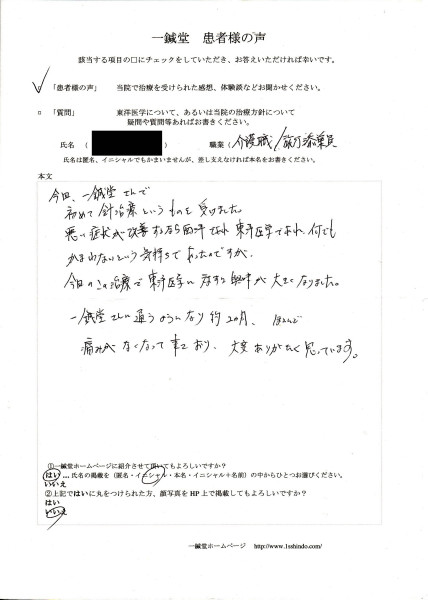 一鍼堂　患者様の声
該当する項目の□にチェックをしていただき、お答えいただければ幸いです。
「患者様の声」　当院で治療を受けられた感想、体験談などお聞かせください。
□　「質問」　東洋医学について、あるいは当院の治療方針について
疑問や質問等あればお書きください。
氏名　（　　）　職業（介護職／旅行添乗員
氏名は匿名、イニシャルでもかまいませんが、差し支えなければ本名をお書きください。
本文
今回、一鍼堂さんで
初めて針治療というものを受けました。
悪い症状が改善するなら西洋であれ東洋医学であれ、何でも
かまわないという気持ちであったのですが、
今回のこの治療で東洋医学に対する興味が大きくなりました。
一鍼堂さんに通うようになり約2カ月、ほとんど
痛みがなくなって来ており、大変ありがたく思っています。
①一鍼堂ホームページに紹介させて頂いてもよろしいですか？
はい…氏名の掲載を（匿名・イニシャル・本名・イニシャル＋名前）の中からひとつお選びください。
いいえ
②上記ではいに丸をつけられた方、顔写真をHP上で掲載してもよろしいですか？
はい
いいえ
一鍼堂ホームページ　http://www.1sshindo.com/